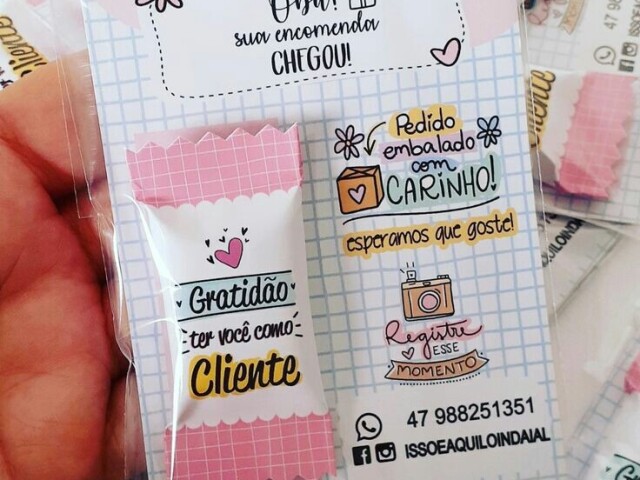 Oba!
sua encomenda
CHEGOU!
Pedido
embalado
com
CARINHO!
esperamos que goste!
Gratidão
ter você como
Cliente
Registre
ESSE
MOMENTO
47 988251351
ISSOEAQUILOINDAIAL